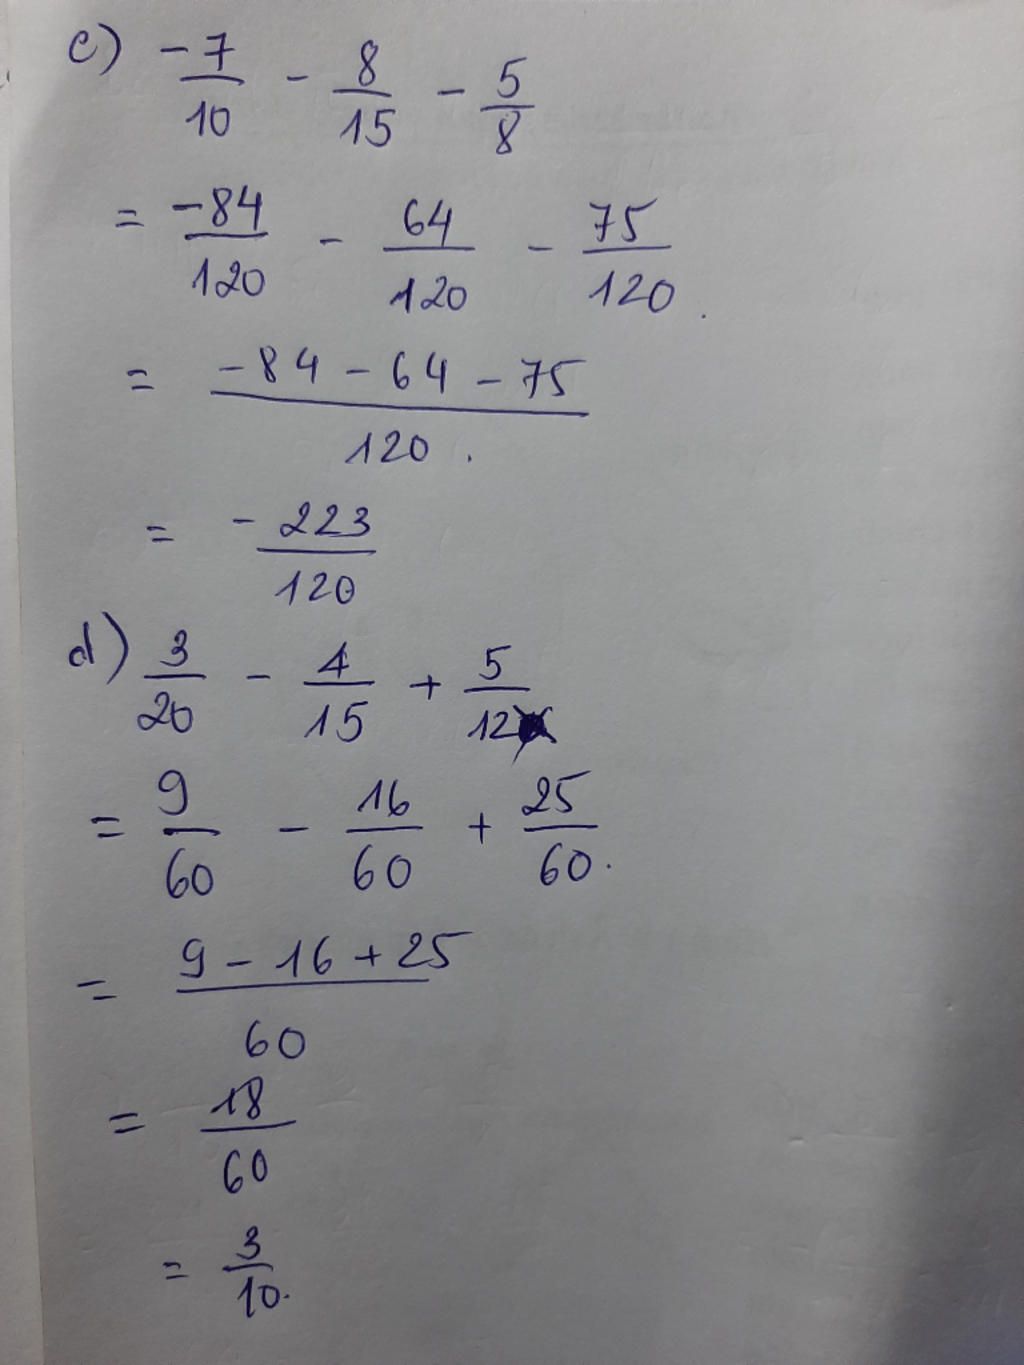 c) -7/10 - 8/15 - 5/8
= -84/120 - 64/120 - 75/120.
= -84 - 64 - 75/120.
= -223/120
d) 3/20 - 4/15 + 5/12
= 9/60 - 16/60 + 25/60.
= 9 - 16 + 25/60
= 18/60
= 3/10.